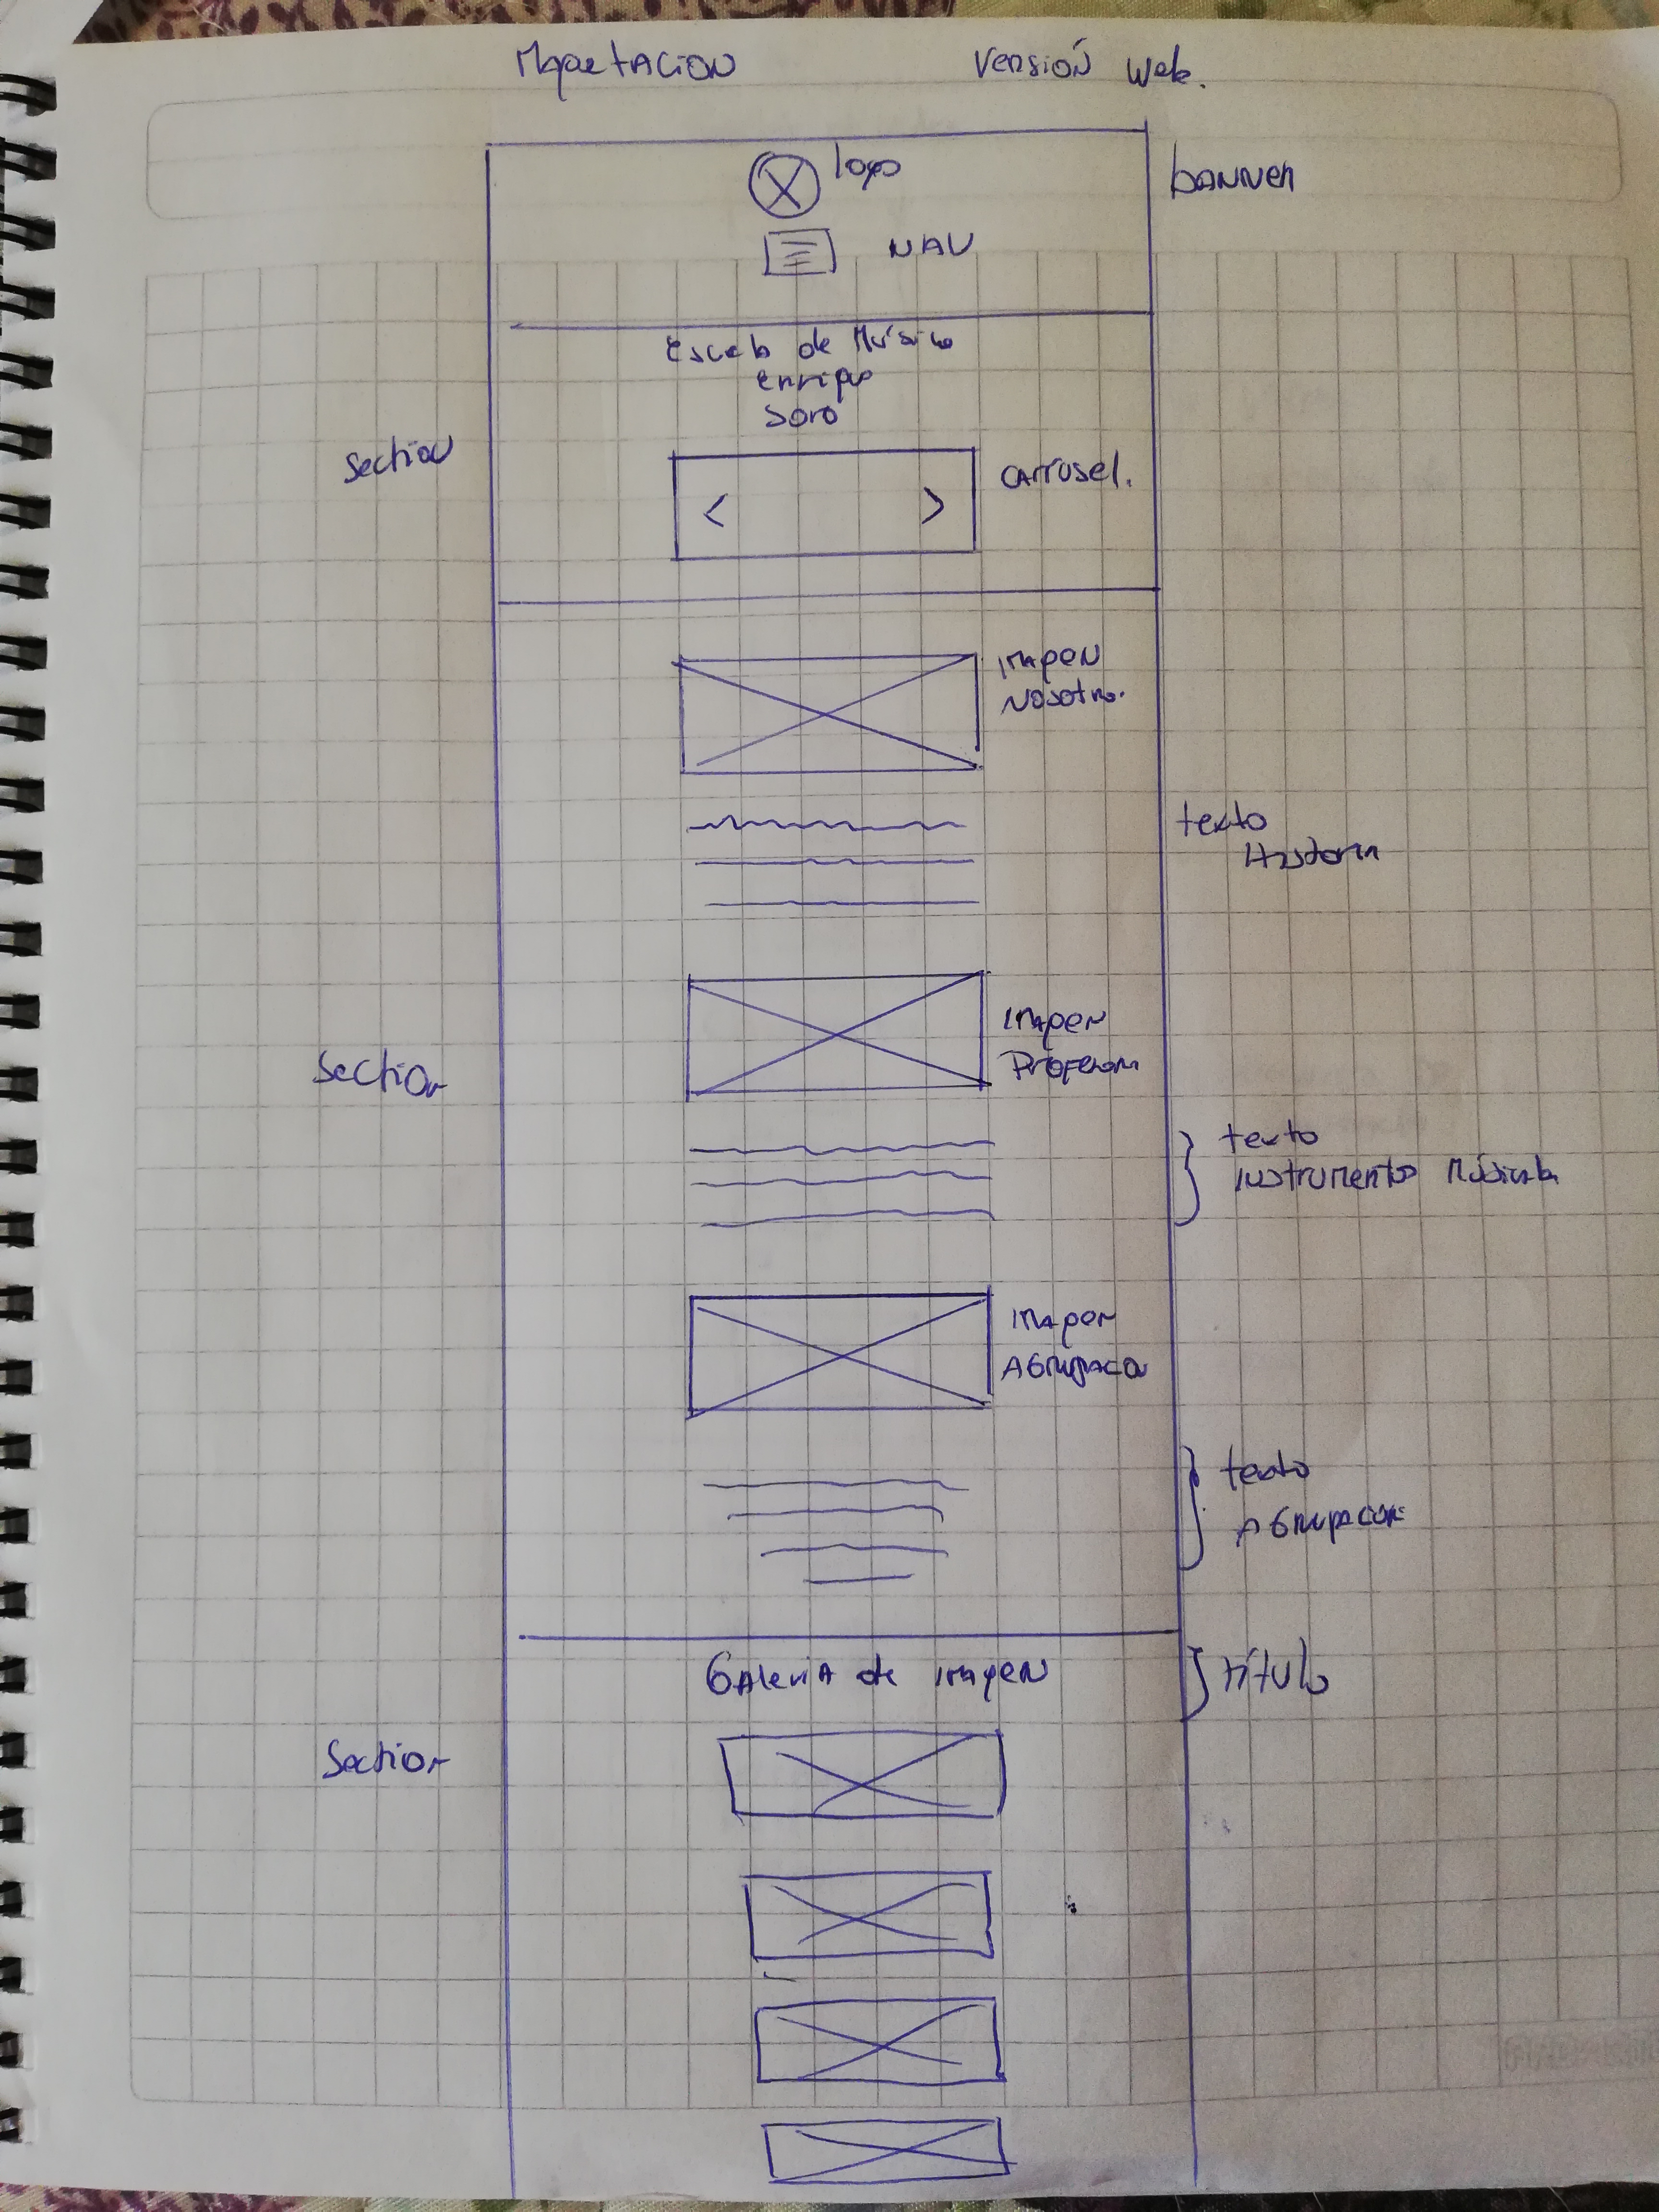 Maquetacion Versión Web.
logo
banner
NAV
Escuela de Música
Enrique
Soro
Section
carrusel.
Imagen
Nosotro.
texto
Historia
Imagen
Profesora
Section
texto
Instrumentos Músicales
Imagen
Agrupacion
texto
Agrupacion
Galeria de imagen
título
Section